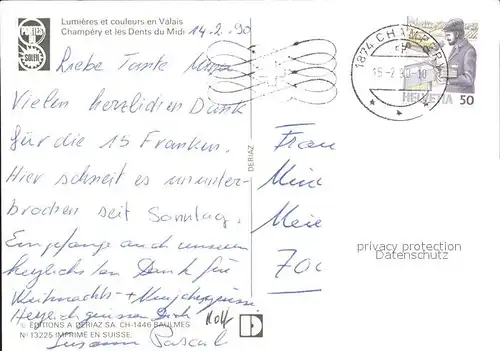 Lumières et couleurs en Valais
Champéry et les Dents du Midi
14.2.90
PUITS
SOLEIL
Liebe Tante
Vielen herzlichen Dank
für die 15 Franken.
Hier schneit es ununter-
brochen seit Sonntag.
Empfange auch unseren
herzlichsten Dank für
Weihnachts- + Neujahrsgrüsse
Herzlich grüssen Dich
Rolf
Pascal
© EDITIONS A. DERIAZ SA. CH-1446 BAULMES
N° 13225 IMPRIMÉ EN SUISSE.
DERIAZ
1874 CHAMPÉRY
15-2.90-10
HELVETIA 50
Frau
Meie
700
privacy protection
Datenschutz